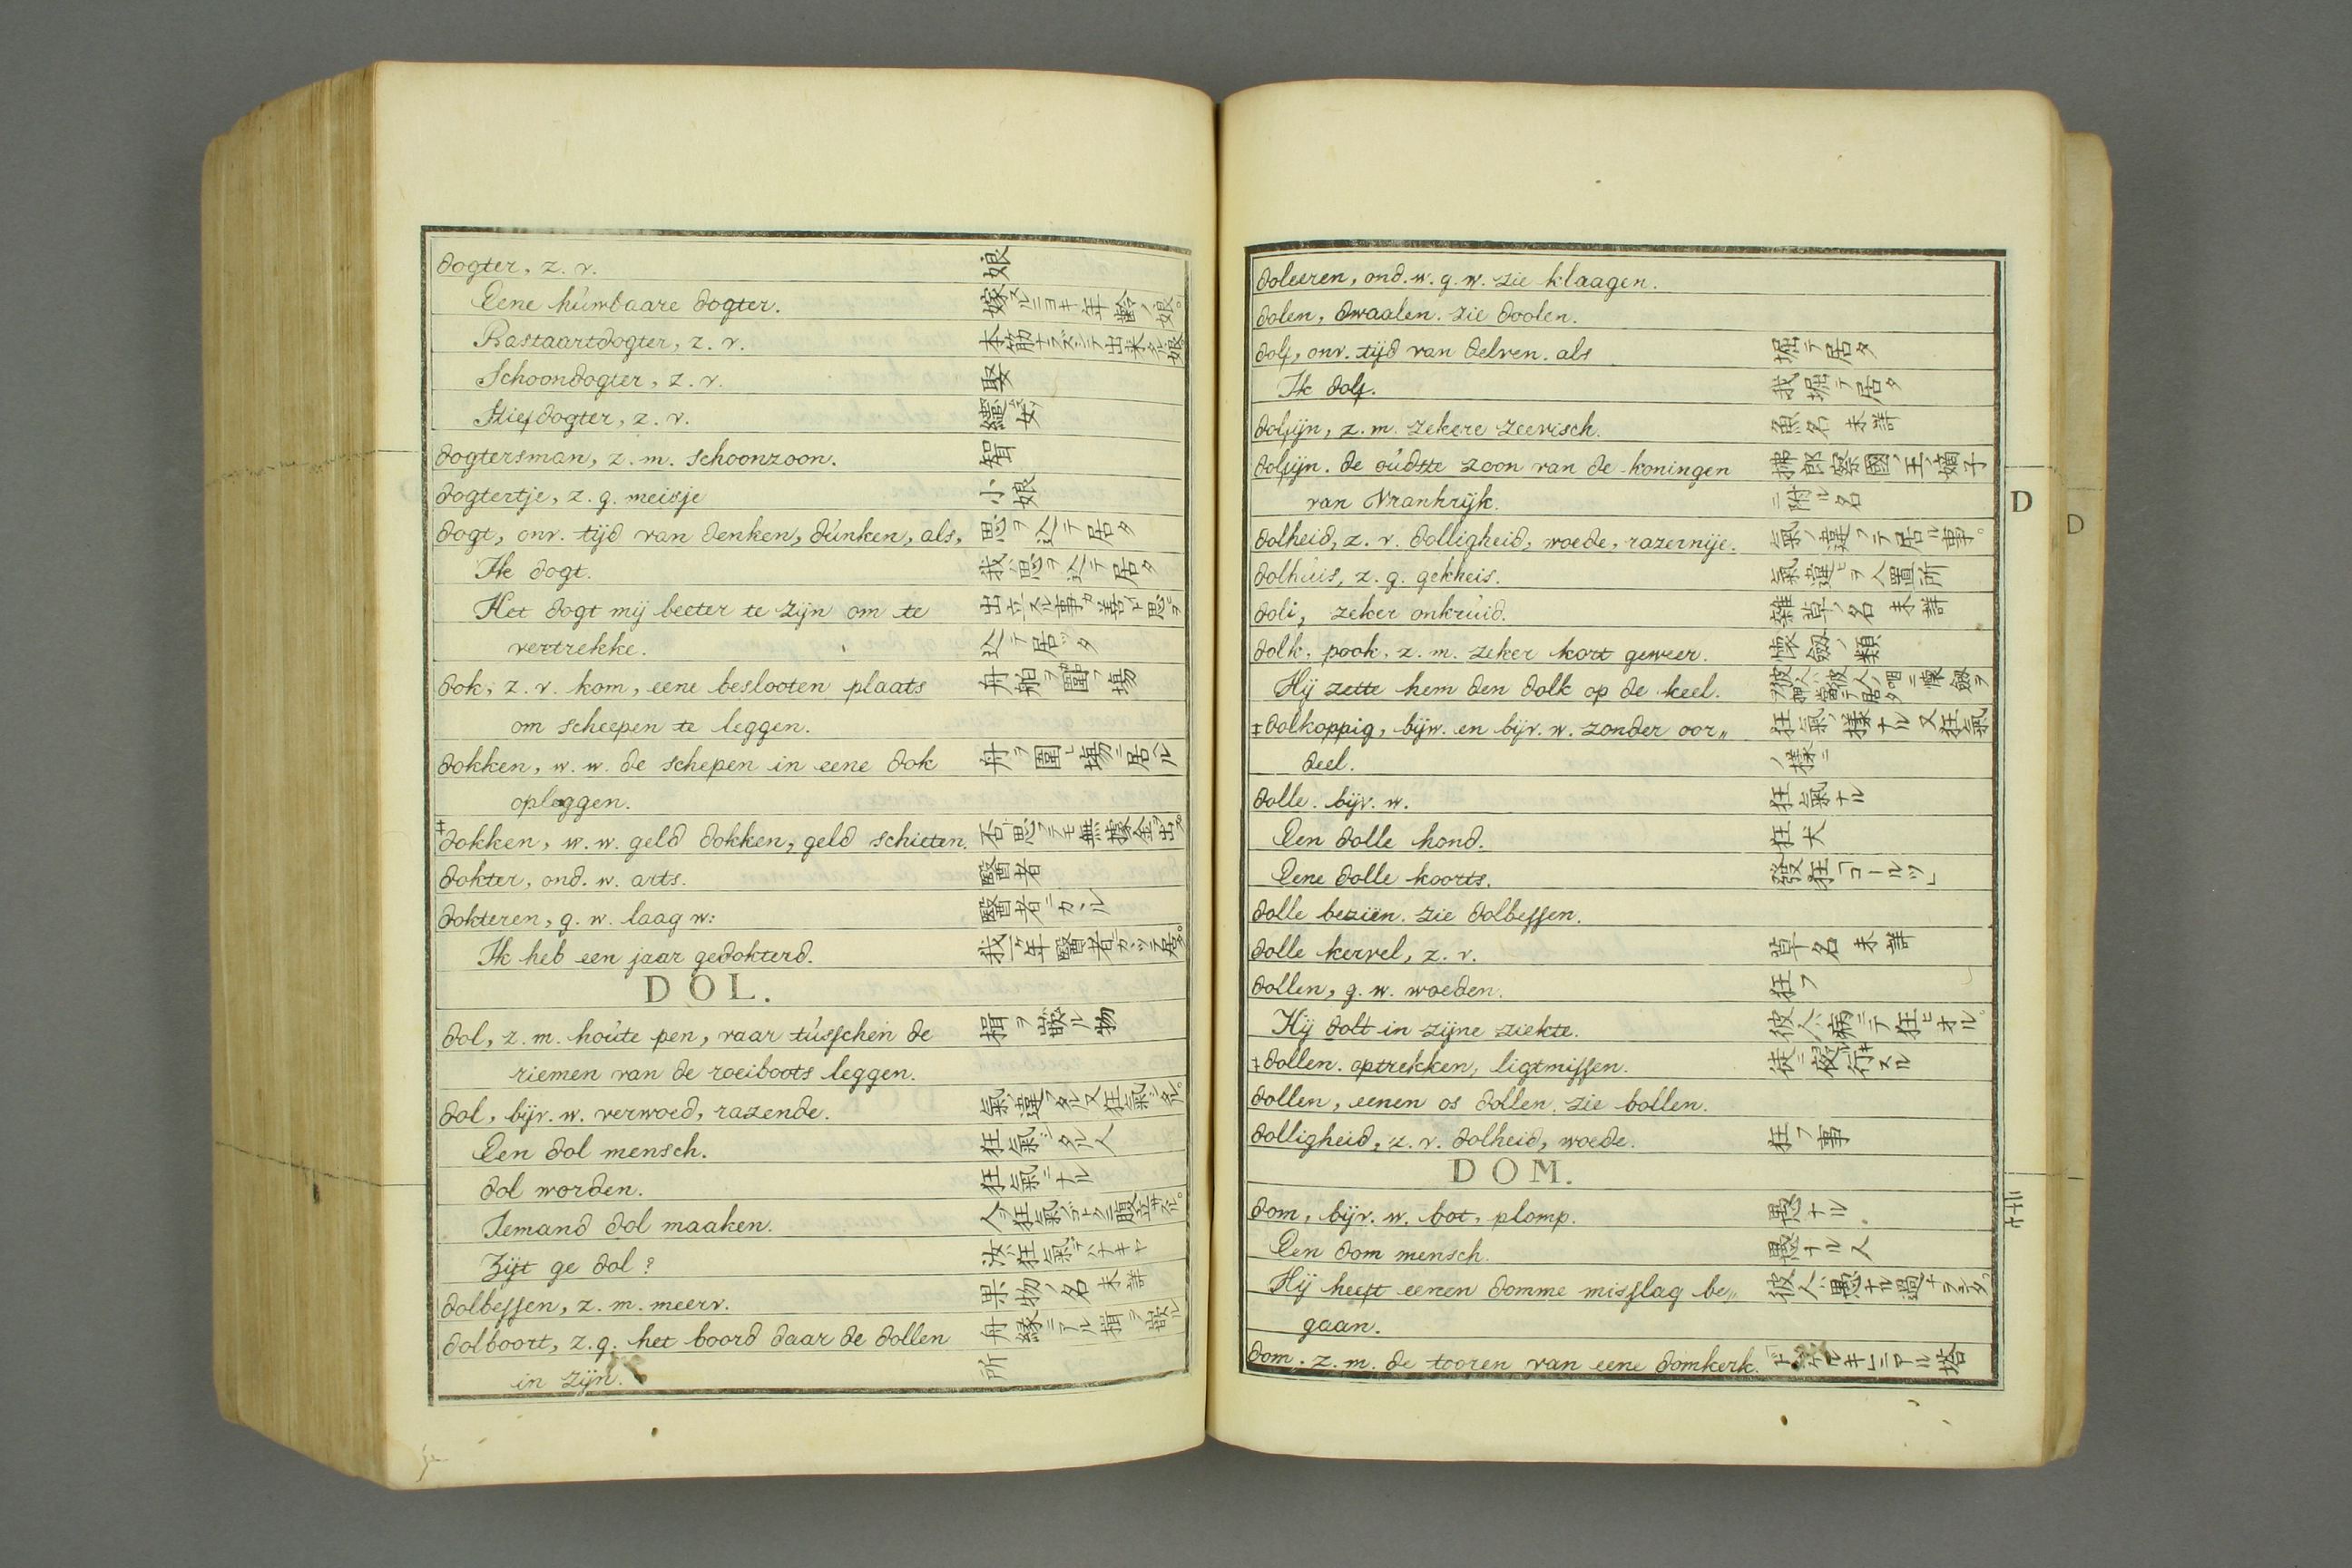 dogter, z. v. 娘
Eene húwbaare dogter. 嫁スルニヨキ年齢ノ娘。
Bastaartdogter, z. v.
Schoondogter, z. v. 娶
Stiefdogter, z. v. 繼女
dogtersman, z. m. schoonzoon.
dogtertje, z. g. meisje 小娘
dogt, onv. tijd van denken, dúnken, als, 思ヲ込テ居タ
Ik dogt. 我ハ思ヲ込テ居タ
Het dogt mij beeter te zijn om te
vertrekke. 込テ居ッタ
dok, z. v. kom, eene beslooten plaats 舟舶ヲ圍フ場
om scheepen te leggen.
dokken, w. w. de schepen in eene dok 舟ヲ圍ヒ場ニ居ル
opleggen.
‡dokken, w. w. geld dokken, geld schieten.
dokter, ond. w. arts. 醫者
dokteren, g. w. laag w:
Ik heb een jaar gedokterd.
DOL.
dol, z. m. hoúte pen, vaar tússchen de 揖ヲ嵌ル物
riemen van de roeiboots leggen.
dol, bijv. w. verwoed, razende.
Een dol mensch. 狂氣シタル人
dol worden. 狂氣ニナル
Iemand dol maaken.
Zijt ge dol?
dolbessen, z. m. meerv. 果物ノ名 未詳
dolboort, z. g. het boord daar de dollen 舟縁ニアル揖ヲ嵌ル
in zijn. 所
doleeren, ond. w. g. w. zie klaagen.
dolen, dwaalen. zie doolen.
dolf, onv. tijd van delven. als 堀テ居タ
Ik dolf. 我堀テ居タ
dolfijn, z. m. zekere zeevisch. 魚名 未詳
dolfijn. de oúdste zoon van de koningen 拂郎察國ノ王ノ嫡子
van Vrankrijk. ニ附ル名
D
D
dolheid, z. v. dolligheid, woede, razernije. 氣ノ違フテ居ル事。
dolhuis, z. g. gekheis. 氣違ヒヲ入置所
doli, zeker onkrúid. 雜草ノ名 未詳
dolk, pook, z. m. zeker kort geweer. 懐劔ノ類
Hij zette hem den dolk op de keel.
‡dolkoppig, bijw. en bijv. w. zonder oor„ 狂氣ノ樣ナル又狂氣
deel. ノ樣ニ
dolle. bijv. w. 狂氣ナル
Een dolle hond. 狂犬
Eene dolle koorts. 發狂「コールツ」
dolle beziën. zie dolbessen.
dolle kervel, z. v. 草名 未詳
dollen, g. w. woeden. 狂フ
Hij dolt in zijne ziekte.
‡dollen. optrekken, ligtmissen.
dollen, eenen os dollen. zie bollen.
dolligheid, z. v. dolheid, woede. 狂フ事
DOM.
dom, bijv. w. bot, plomp. 愚ナル。
Een dom mensch. 愚ナル人
Hij heeft eenen domme misslag be„
gaan.
dom. z. m. de tooren van eene domkerk.